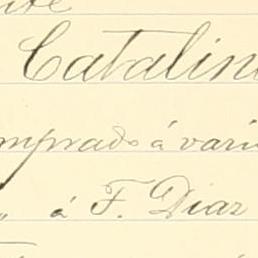 Catalin
mprado á vari
" á F. Diaz